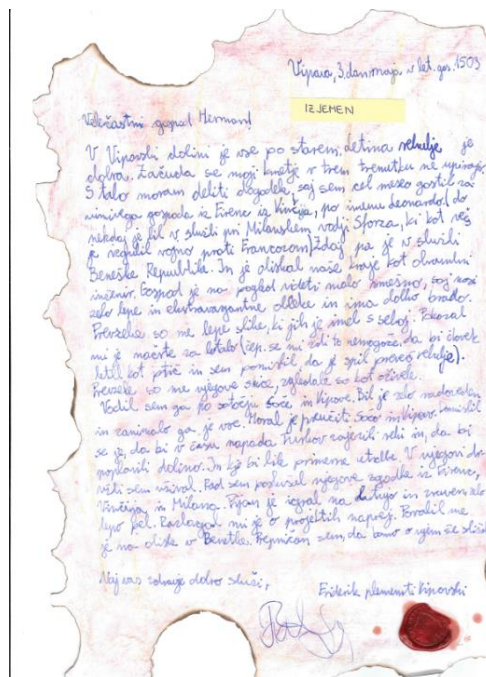 Vipava, 3. dan maja v let. gos. 1503
IZJEMEN
Velečastni gospod Herman!
V Vipavski dolini je vse po starem, letina rebulje je
dobra. Začuda se moji kmetje v tem trenutku ne upirajo.
S tabo moram deliti dogodek, saj sem cel mesec gostil za
nimivega gospoda iz Firenc iz Vinčija, po imenu Leonardo (do
nekdaj je bil v službi pri Milanskem vodji Sforza, ki kot veš
je izgubil vojno proti Francozom) Zdaj pa je v službi
Beneške Republike. In je obiskal naše kraje kot obrambni
inženir. Gospod je na pogled videti malo smešno, saj nosi
zelo lepe in ekstravagantne obleke in ima dolgo brado.
Prevzele so me lepe slike, ki jih je imel s seboj. Pokazal
mi je načrte za letalo (čep. se mi zdi to nemogoče, da bi človek
letel kot ptič in sem pomislil, da je spil preveč rebulje).
Prevzele so me njegove skice, izgledale so kot oživele.
Vodil sem ga po sotočju Soče in Vipave. Bil je zelo radoveden
in zanimalo ga je vse. Moral je preučiti Sočo in Vipavo. Domislil
se je, da bi v času napada Turkov zajezili reki in, da bi
poplavili dolino. In kje bi bile primerne utrdbe. V njegovi dru
žbi sem užival. Rad sem poslušal njegove zgodbe iz Firenc,
Vinčija in Milana. Pijan je igral na lutnjo in zraven zelo
lepo pel. Razlagal mi je o projektih naprej. Povabil me
je na obisk v Benetke. Prepričan sem, da bomo o njem še slišali.
Naj vas zdravje dobro služi,
Friderik plemeniti Vipavski